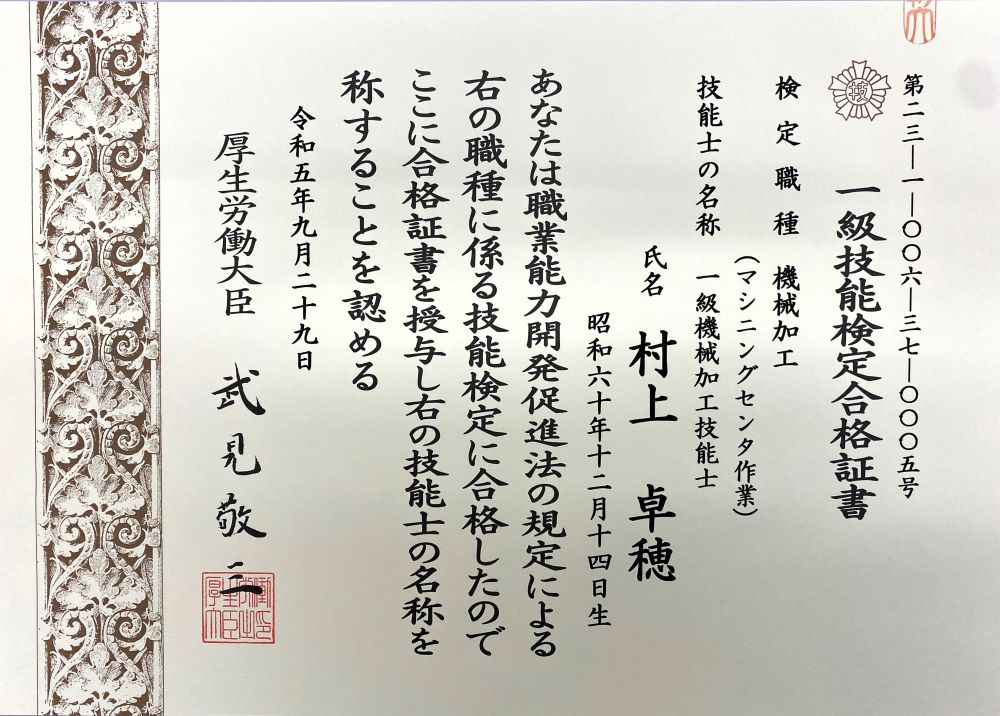 第二三―一―〇〇六―三七―〇〇〇五号
一級技能検定合格証書
検定職種 機械加工
(マシニングセンタ作業)
技能士の名称 一級機械加工技能士
氏名 村上 卓穂
昭和六十年十二月十四日生
あなたは職業能力開発促進法の規定による
右の職種に係る技能検定に合格したので
ここに合格証書を授与し右の技能士の名称を
称することを認める
令和五年九月二十九日
厚生労働大臣 武見敬三